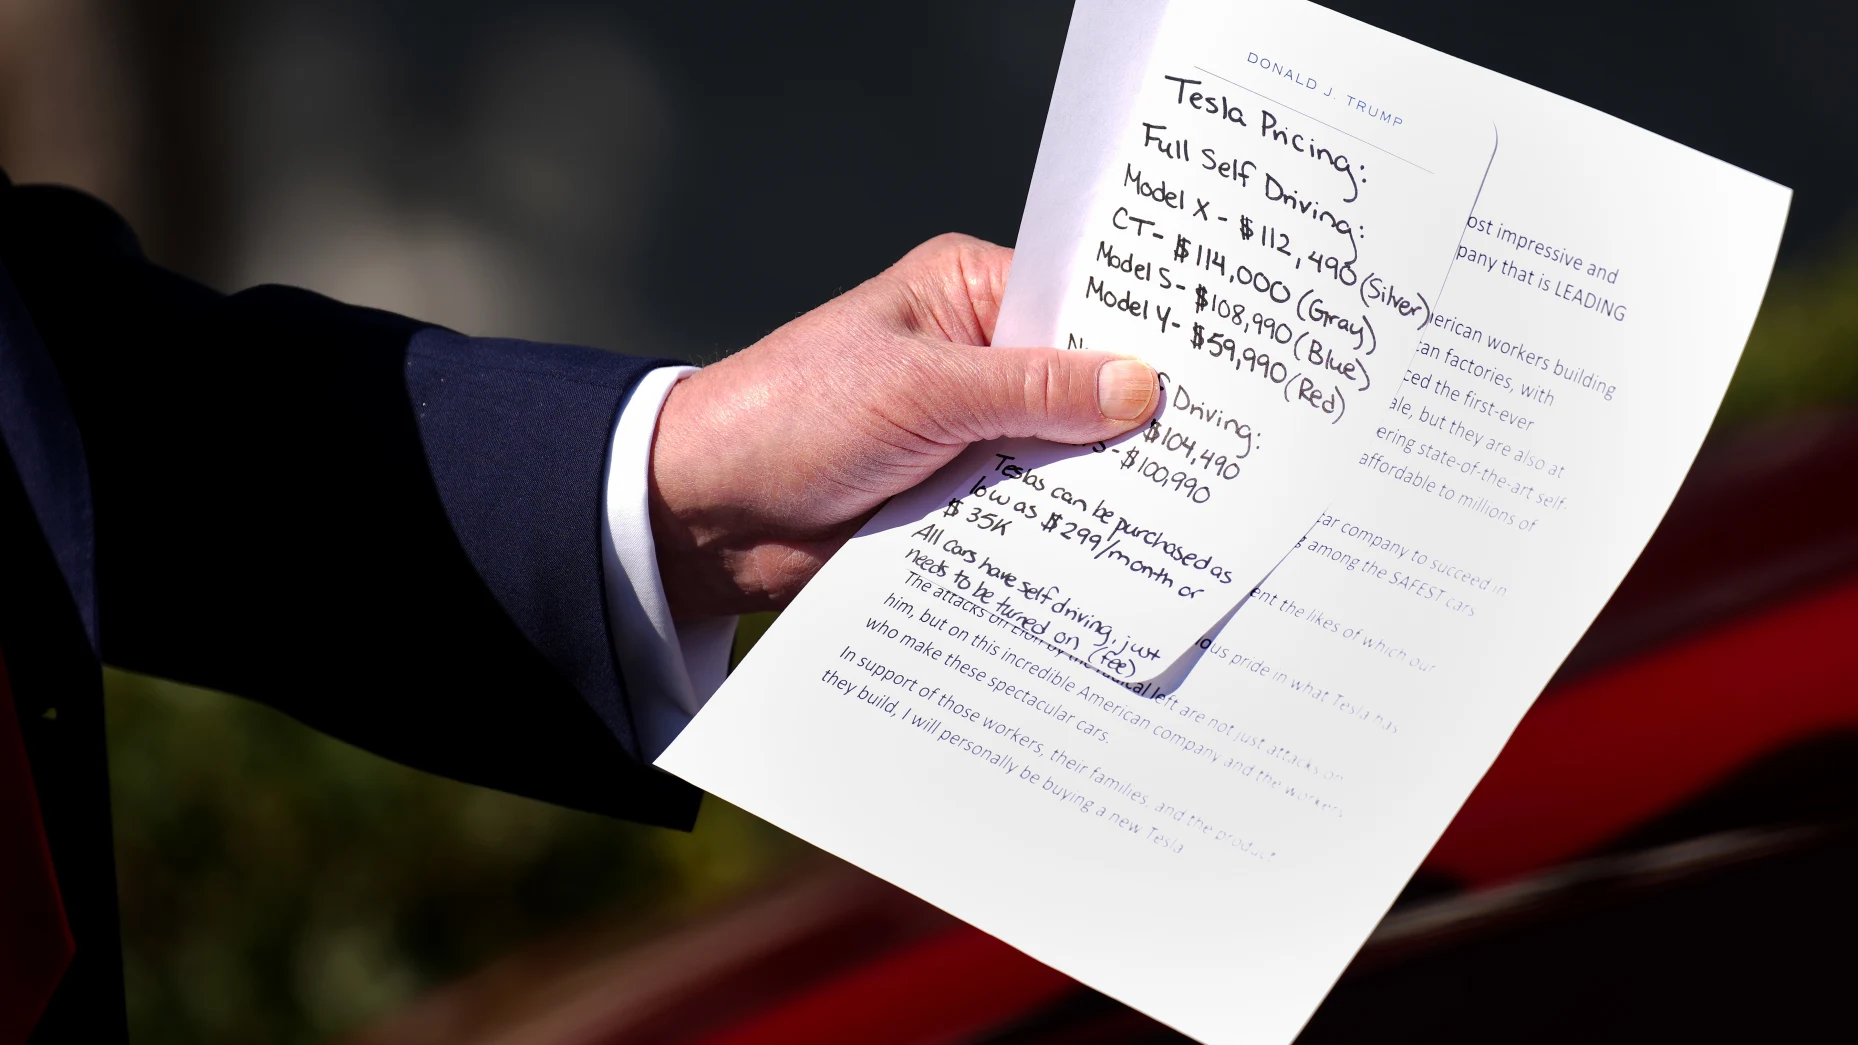 DONALD J. TRUMP
Tesla Pricing:
Full Self Driving:
Model X - $112,490 (Silver)
CT- $114,000 (Gray)
Model S- $108,990 (Blue)
Model Y- $59,990 (Red)
Driving:
$104,490
S - $100,990
Teslas can be purchased as
low as $299/month or
$35K
All cars have self driving, just
needs to be turned on (fee)
ost impressive and
pany that is LEADING
erican workers building
can factories, with
ced the first-ever
ale, but they are also at
ering state-of-the-art self-
affordable to millions of
car company to succeed in
g among the SAFEST cars
ent the likes of which our
ous pride in what Tesla has
The attacks on Elon by the radical left are not just attacks on
him, but on this incredible American company and the workers
who make these spectacular cars.
In support of those workers, their families, and the product
they build, I will personally be buying a new Tesla